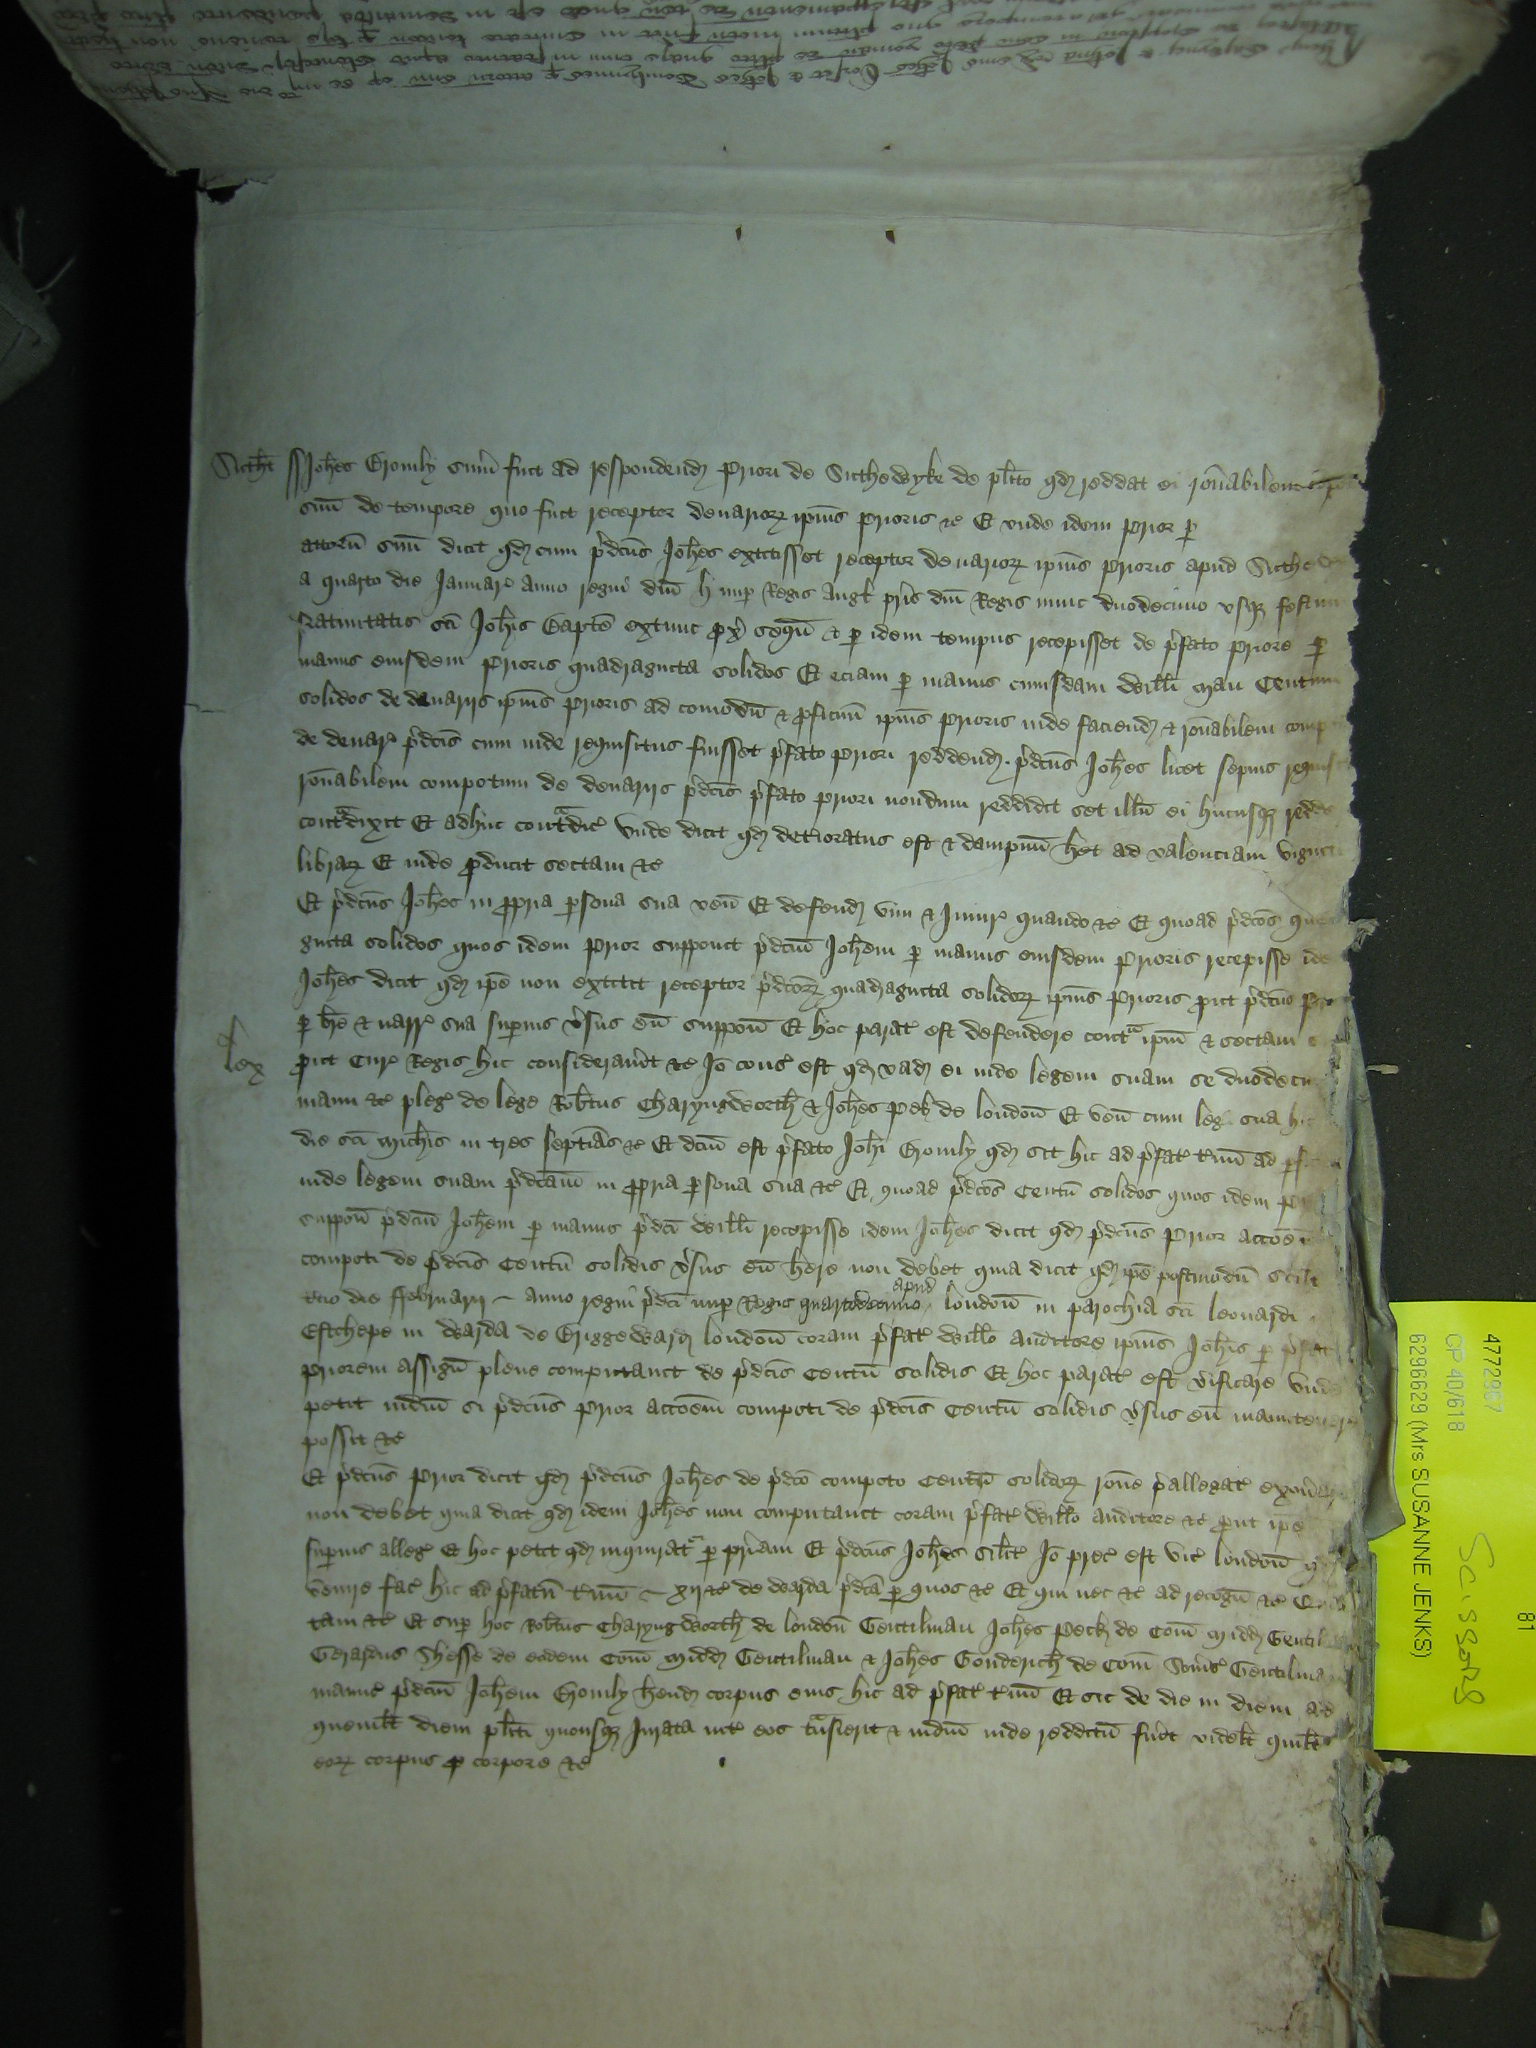 Sutht Joh̄es Gomly sum̄ fuit ad respondend Priori de Suthewyke de pl̄ito qd reddat ei rōnabilem
suū de tempore quo fuit receptor denarioꝝ ipius Prioris &c Et unde idem Prior p
attorn̄ suū dicit qd cum p̄dcūs Joh̄es extitisset receptor denarioꝝ ipius Prioris apud Suthe
a quarto die Januar̄ anno regni dn̄i H nup Regis Angl̄ pr̄is dn̄i Regis nunc duodecimo usqꝫ festum
Natiuitatis sc̄i Joh̄is Bapt̄e extunc px̄ sequn̄ & p idem tempus recepisset de p̄fato Priore p
manus eiusdem Prioris quadraginta solidos Et eciam p manus cuiusdam Will̄i May Centum
solidos de denariis ipius Prioris ad comodū & pficuū ipius Prioris inde faciend & rōnabilem comp
de denar̄ p̄dcīs cum inde requisitus fuisset p̄fato Priori reddend . p̄dcūs Joh̄es licet sepius requis
rōnabilem compotum de denariis p̄dcīs p̄fato Priori nondum reddidit set ill̄m ei hucusqꝫ redde
contradixit Et adhuc contradic̄ unde dicit qd det̄ioratus est & dampnū het ad valenciam viginti
libraꝝ Et inde pducit sectam &c
Et p̄dcūs Joh̄es in ppria psona sua ven̄ Et defend vim & Iniur̄ quando &c Et quoad p̄dcōs quadra
ginta solidos quos idem Prior supponit p̄dcūm Joh̄em p manus eiusdem Prioris recepisse idem
Joh̄es dicit qd ip̄e non extitit receptor p̄dcōꝝ quadraginta solidoꝝ ipius Prioris put p̄dcūs
p br̄e & narr̄ sua supius v̄sus eū suppon̄ Et hoc parat̄ est defendere contra ipm̄ & sectam
Lex put Cur̄ Regis hic considerauit &c Iō cons̄ est qd vad ei inde legem suam se duodecima
manu &c pleg̃ de lege Rob̄tus Charyngworth & Joh̄es Pek de london̄ Et ven̄ cum leg̃ sua hic
die sc̄i Mich̄is in tres septiās &c Et dcm̄ est p̄fato Joh̄i Gomly qd sit hic ad p̄fat̄ t̄mū ad
inde legem suam p̄dcām in ppria psona sua &c Et quoad p̄dcōs Centū solidos quos idem
suppon̄ p̄dcūm Joh̄em p manus p̄dcī Will̄i recepisse idem Joh̄es dicit qd p̄dcūs Prior acc̄oem
compoti de p̄dcīs Centū solidis v̄sus eū h̄ere non debet quia dicit qd ip̄e postmodū scil̄t
t̄cio die ffebruarii anno regni p̄dcī nup Regis quartodecimo apud london̄ in parochia sc̄i leonardi
Estchepe in Warda de Briggeward london̄ coram p̄fat̄ Will̄o auditore ipius Joh̄is p p̄fat̄
Priorem assign̄ plene computauit de p̄dcīs Centū solidis Et hoc parat̄ est v̄ificare unde
petit iudm̄ si p̄dcūs Prior acc̄oem compoti de p̄dcīs Centū solidis v̄sus eū manutenere
possit &c
Et p̄dcūs Prior dicit qd p̄dcūs Joh̄es de p̄dcō compoto Centū solidoꝝ rōne p̄allegat̄ exon̄ari
non debet quia dicit qd idem Joh̄es non computauit coram p̄fat̄ Will̄o auditore &c put ip̄e
supius alleg̃ Et hoc petit qd inquirat̄ p pr̄iam Et p̄dcūs Joh̄es silit̄ Iō prec̄ est vic̄ london̄ qd
venire fac̄ hic ad p̄fatū t̄mū xii &c de Warda p̄dcā p quos &c Et qui nec &c ad recogn̄ &c Quia
tam &c Et sup hoc Rob̄tus Charyngworth de london̄ Gentilman Joh̄es Peck de Com̄ Midd Gentilman
Gerardus Hesse de eodem Com̄ Midd Gentilman & Joh̄es Gonderich de Com̄ Som̄s Gentilman
manuc̄ p̄dcūm Joh̄em Gomly hend corpus eius hic ad p̄fat̄ t̄mū Et sic de die in diem ad
quemlt diem pl̄iti quousqꝫ Jurata int̄ eos transierit & iudm̄ inde redditū fuit videlt quilt
eoꝝ corpus p corpore &c
4772967
CP 40/618
6296629 (Mrs SUSANNE JENKS)
81
Scissors